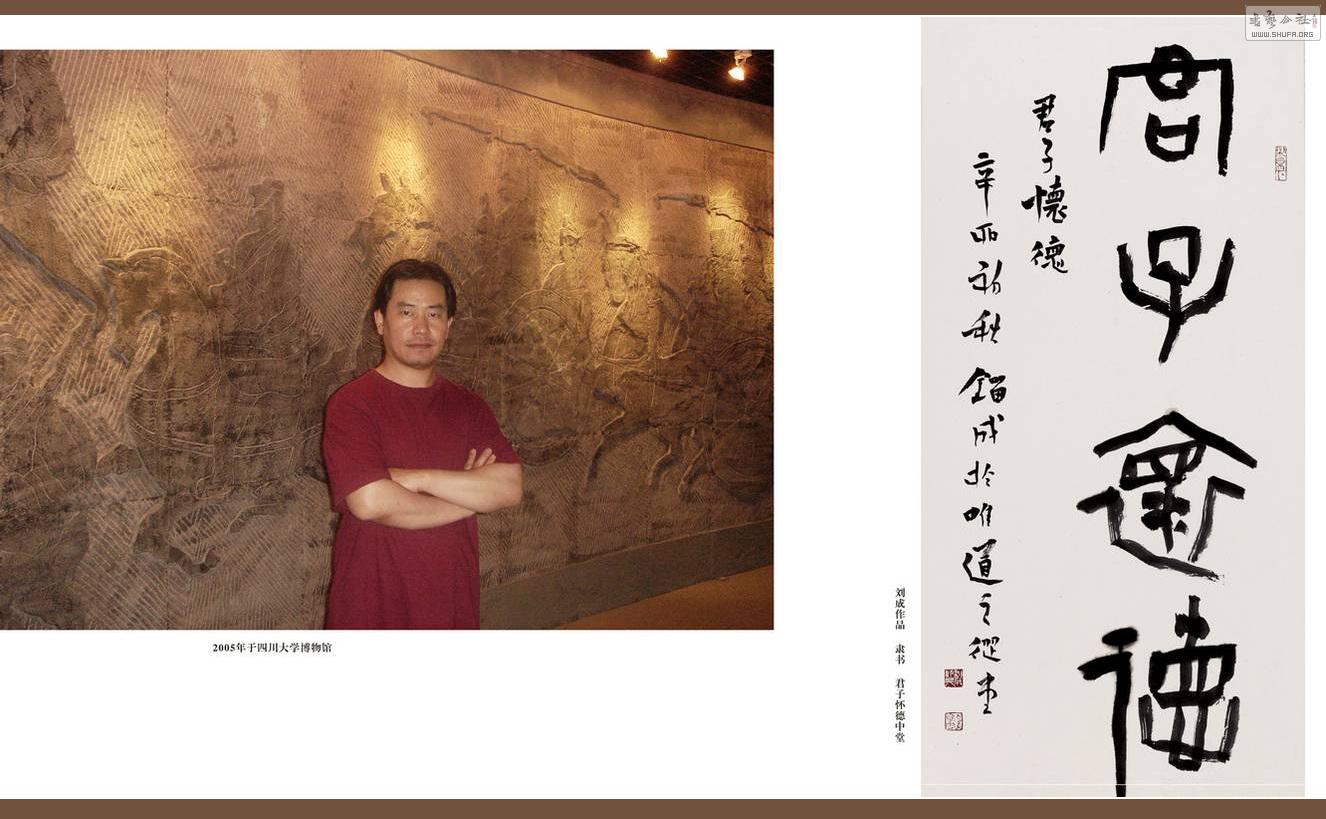 書藝公社
WWW.SHUFA.ORG
君子褱德
君子懷德
辛丣初秋鎦成於唯道之從堂
2005年于四川大学博物馆
刘成作品 隶书 君子怀德中堂